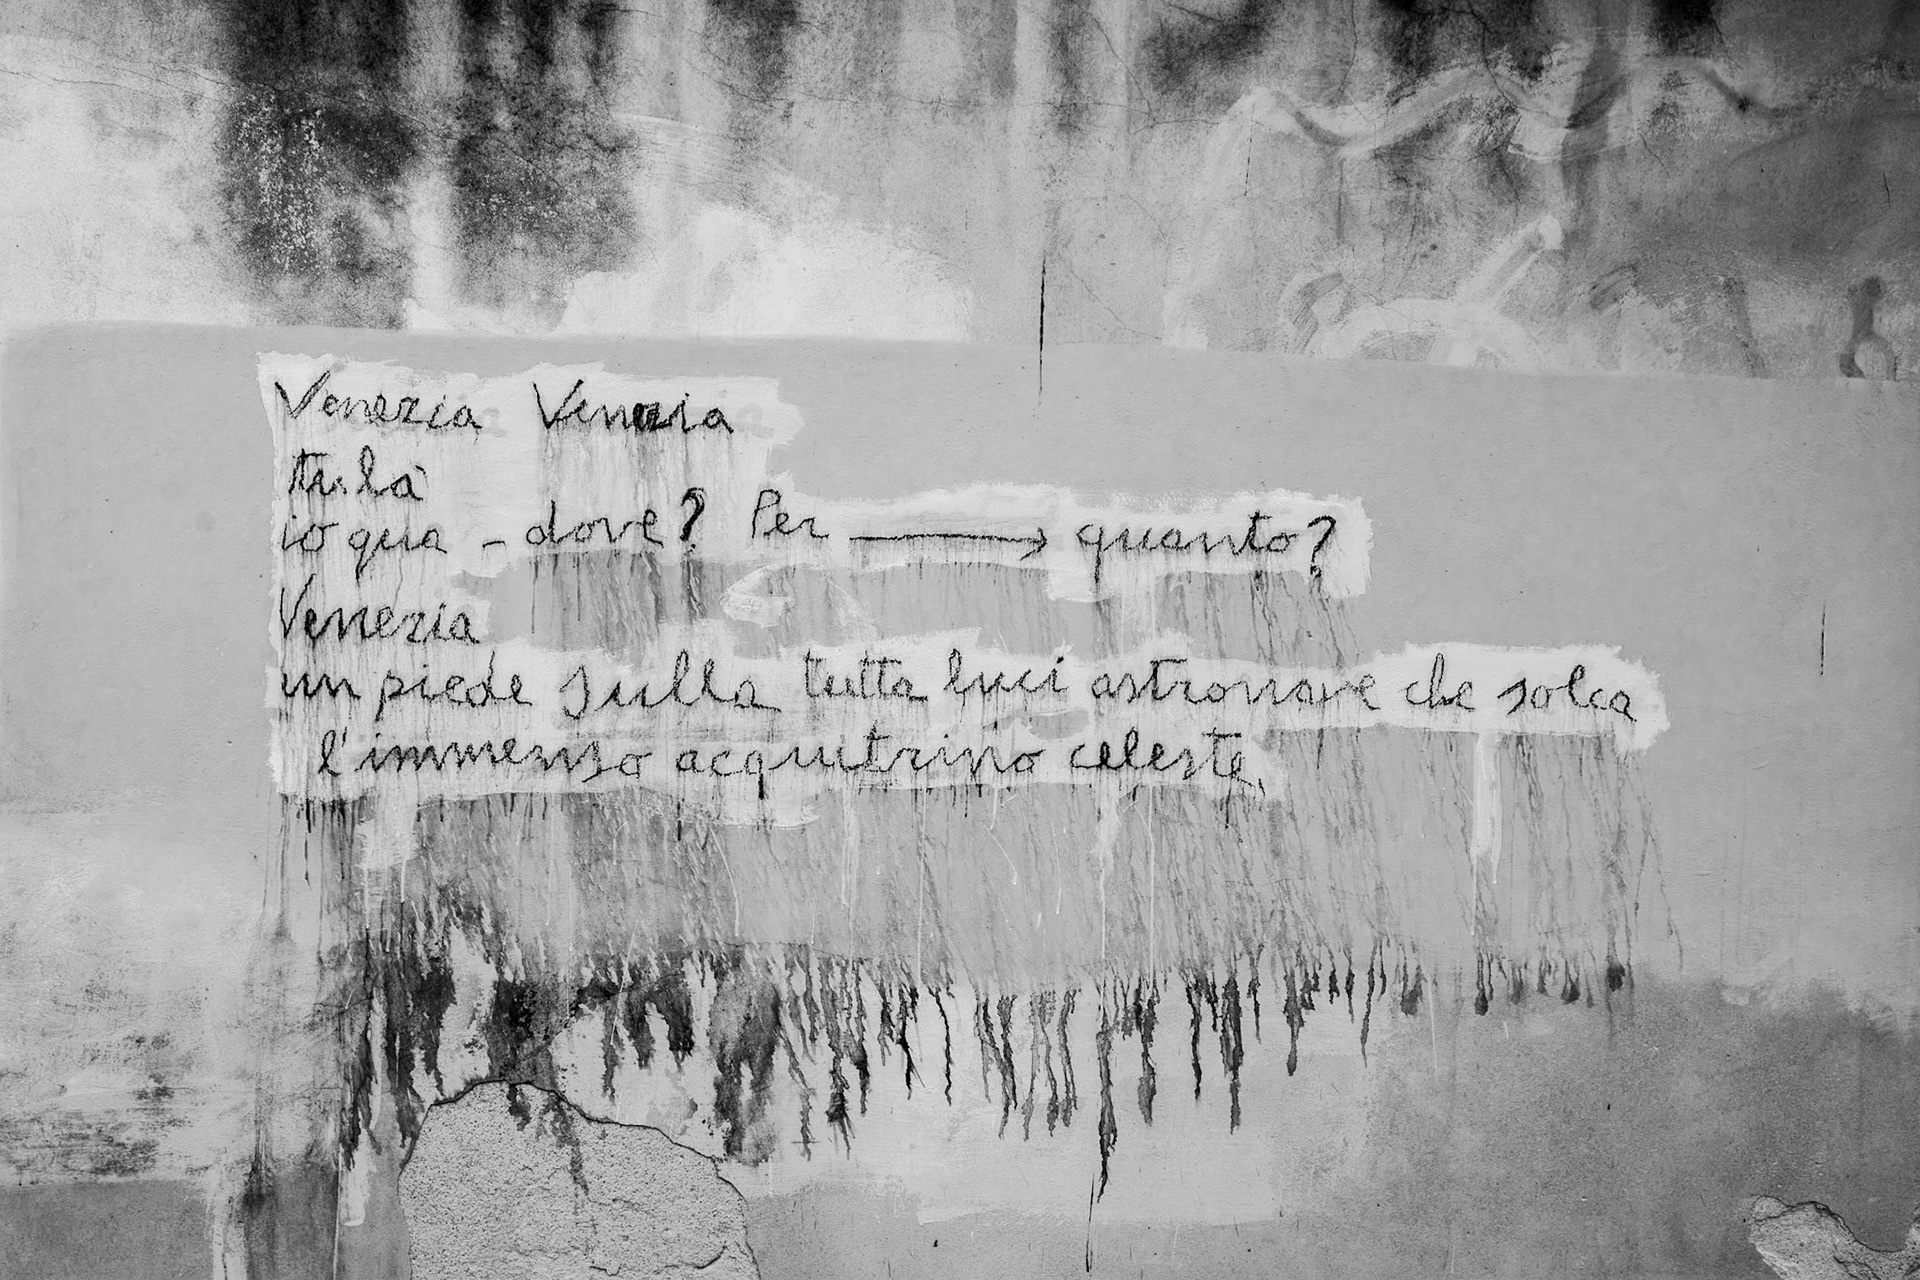 Venezia Venezia
tu là
io qua - dove? Per → quanto?
Venezia
un piede sulla tutta luci astronave che solca
l'immenso acquitrino celeste.